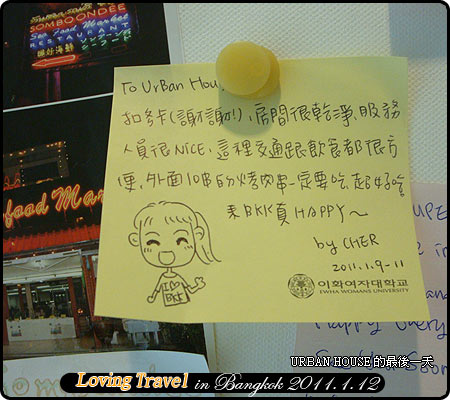 SOMBOONDEE
Sea Food Market
RESTAURANT
To UrBan Hou
扣裙卡(謝謝!)、房間很乾淨、服務
人員很NICE、這裡交通跟飲食都很方
便、外面10B的烤肉串一定要吃,超好吃
來BKK真HAPPY~
by CHER
2011.1.9-11
I ♥
BKK
이화여자대학교
EWHA WOMANS UNIVERSITY
food Ma
UPE
in
and
Happy
Soon
URBAN HOUSE的最後一天
Loving Travel in Bangkok 2011.1.12